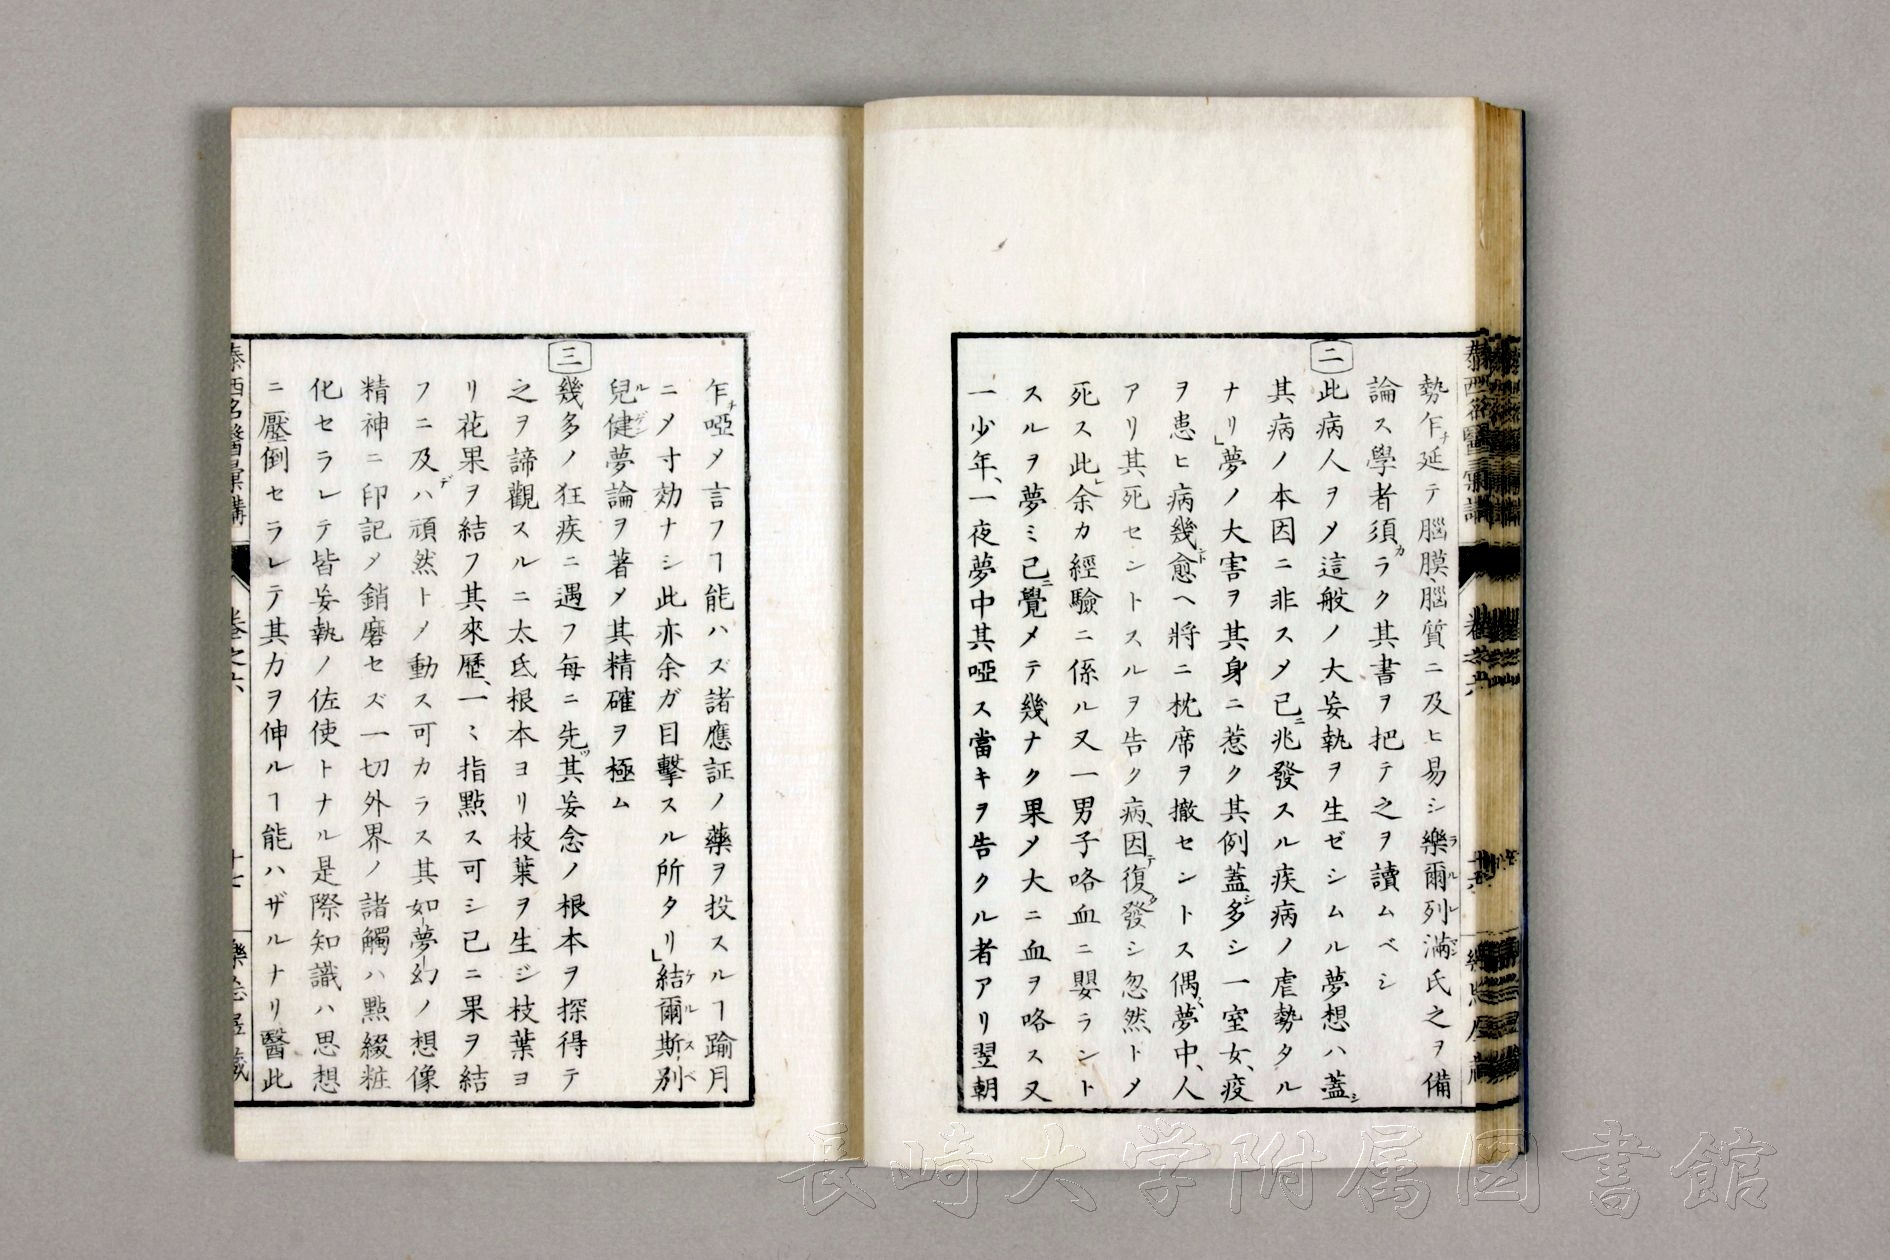 勢乍チ延テ腦膜、腦質ニ及ヒ易シ樂爾列滿氏之ヲ備
論ス學者須カラク其書ヲ把テ之ヲ讀ムベシ
二
此病人ヲメ這般ノ大妄執ヲ生ゼシムル夢想ハ蓋シ
其病ノ本因ニ非スメ已ニ兆發スル疾病ノ虐勢タル
ナリ」夢ノ大害ヲ其身ニ惹ク其例蓋シ多シ一室女、疫
ヲ患ヒ病幾ト愈ヘ將ニ枕席ヲ撤セントス偶〻夢中、人
アリ其死セントスルヲ告ク病、因テ復タ發シ忽然トメ
死ス此レ余カ經驗ニ係ル又一男子咯血ニ嬰ラント
スルヲ夢ミ已ニ覺メテ幾ナク果メ大ニ血ヲ咯ス又
一少年、一夜夢中其啞ス當キヲ告クル者アリ翌朝
乍チ啞メ言フヿ能ハズ諸應証ノ藥ヲ投スルヿ踰月
ニメ寸効ナシ此亦余ガ目擊スル所タリ」結爾斯別
兒健夢論ヲ著メ其精確ヲ極ム
三
幾多ノ狂疾ニ遇フ每ニ先ツ其妄念ノ根本ヲ探得テ
之ヲ諦觀スルニ太氐根本ヨリ枝葉ヲ生ジ枝葉ヨ
リ花果ヲ結フ其來歷、一〻指點ス可シ已ニ果ヲ結
フニ及デハ頑然トメ動ス可カラス其如夢幻ノ想像
精神ニ印記メ銷磨セズ一切外界ノ諸觸ハ點綴粧
化セラレテ皆妄執ノ佐使トナル是際知識ハ思想
ニ壓倒セラレテ其力ヲ伸ルヿ能ハザルナリ醫此
泰西名醫彙講
卷之六
十七
長崎大学附属図書館